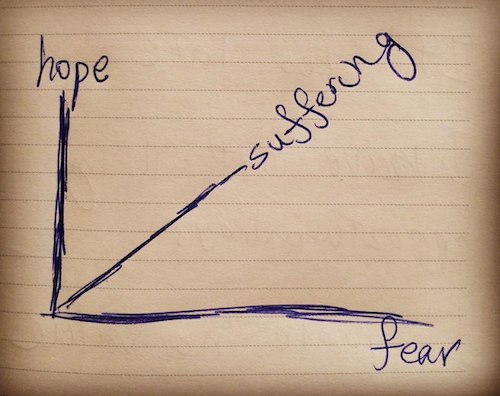 hope
suffering
fear